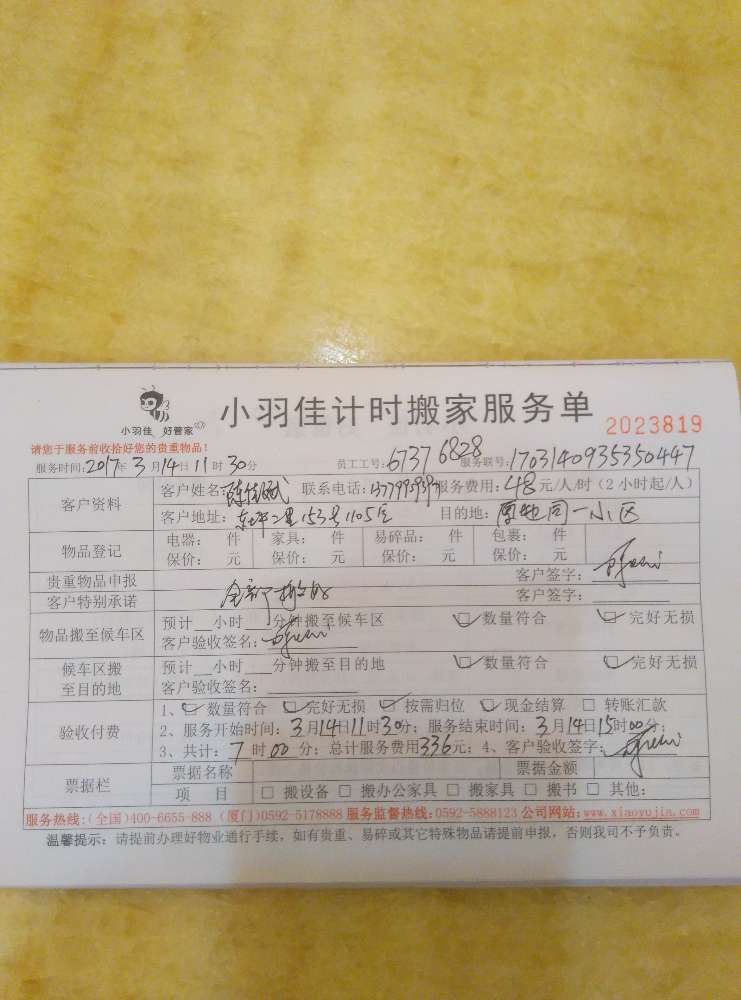 小羽佳 好管家
小羽佳计时搬家服务单 2023819
请您于服务前收拾好您的贵重物品!
服务时间:2017年3月14日11时30分 员工工号:6737 6828 服务联号:1703140935350447
客户资料 客户姓名: 联系电话: 服务费用:48元/人/时(2小时起/人)
客户地址:东坪二里153号1105室 目的地:原地同一小区
物品登记 电器: 件 家具: 件 易碎品: 件 包裹: 件
保价: 元 保价: 元 保价: 元 保价: 元
贵重物品申报 客户签字:
客户特别承诺 全部搬好 客户签字:
物品搬至候车区 预计__小时___分钟搬至候车区 数量符合 完好无损
客户验收签名:
候车区搬至目的地 预计__小时___分钟搬至目的地 数量符合 完好无损
客户验收签名:
验收付费 1、数量符合 完好无损 按需归位 现金结算 转账汇款
2、服务开始时间:3月14日11时30分;服务结束时间:3月14日15时00分;
3、共计:7时00分;总计服务费用336元;4、客户验收签字:
票据栏 票据名称 票据金额
项 目 搬设备 搬办公家具 搬家具 搬书 其他:
服务热线:(全国)400-6655-888 (厦门)0592-5178888 服务监督热线:0592-5888123 公司网站:www.xiaoyujia.com
温馨提示:请提前办理好物业通行手续,如有贵重、易碎或其它特殊物品请提前申报,否则我司不予负责。